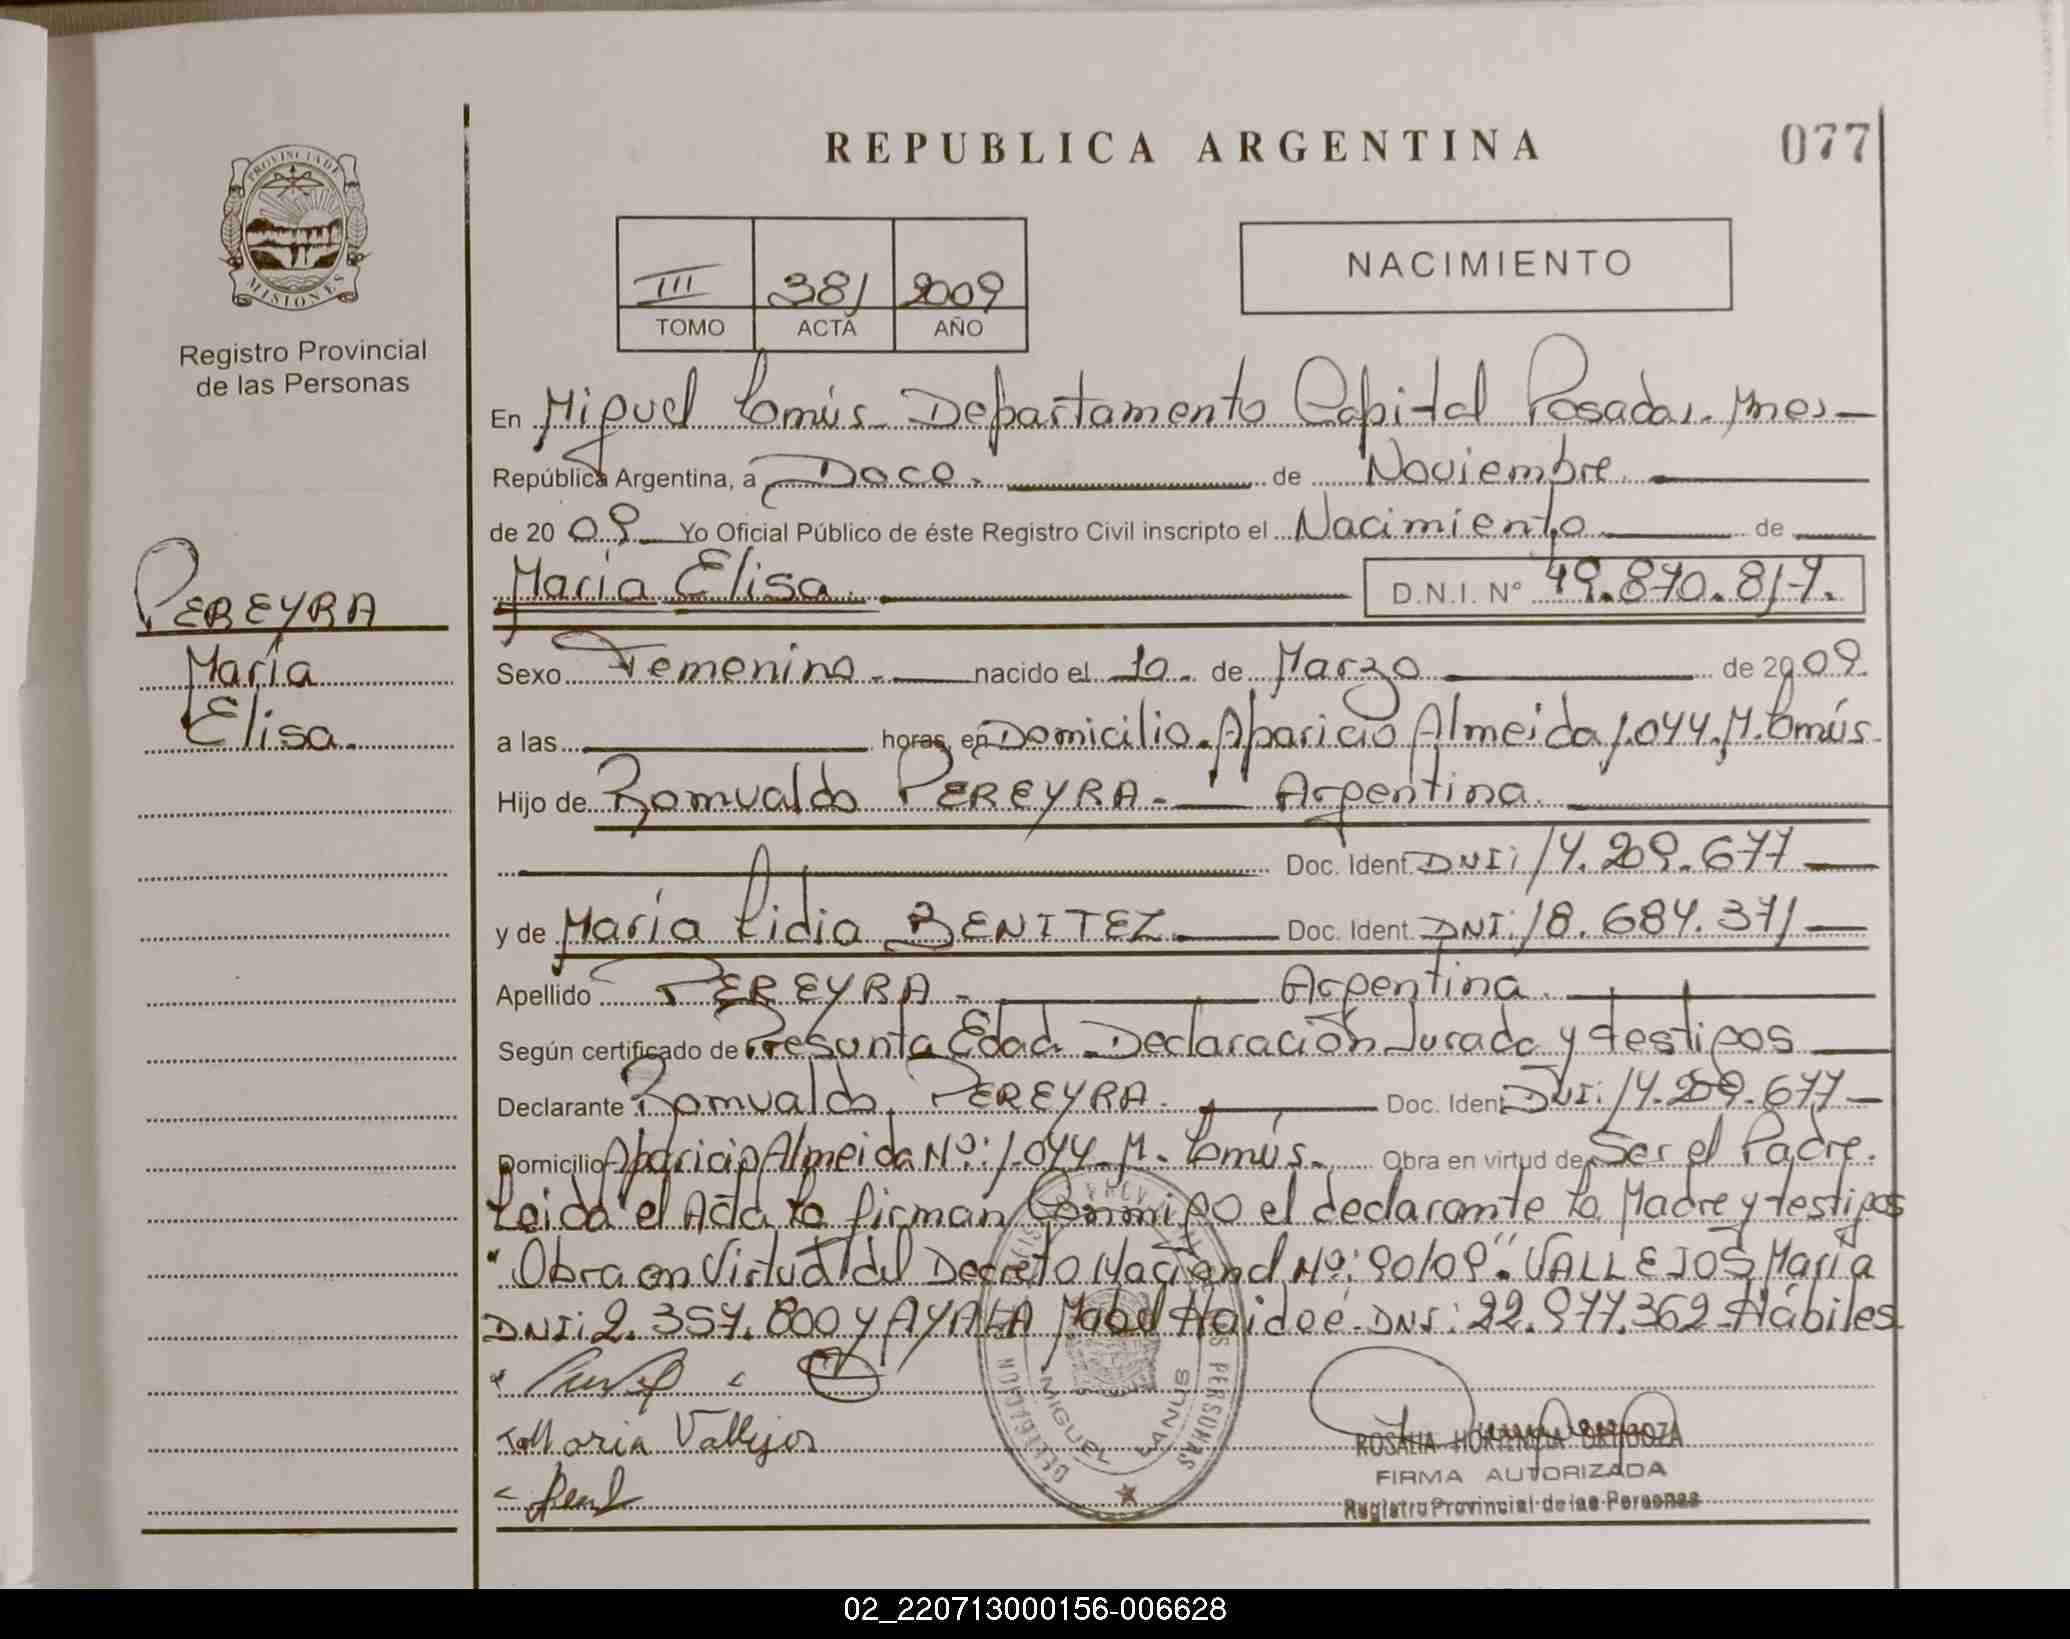 REPUBLICA ARGENTINA
077
PROVINCIA DE
MISIONES
Registro Provincial
de las Personas
III 381 2009
TOMO ACTA AÑO
NACIMIENTO
PEREYRA
María
Elisa.
En Miguel Lanús Departamento Capital Posadas. Mnes
República Argentina, a Doce. de Noviembre.
de 2009 Yo Oficial Público de éste Registro Civil inscripto el Nacimiento de
María Elisa. D.N.I. Nº 49.870.817.
Sexo Femenino. nacido el 10. de Marzo de 2009.
a las horas, en Domicilio. Aparicio Almeida 1.044. M. Lanús.
Hijo de Romualdo PEREYRA. Argentina.
Doc. Ident. DNI: 14.209.677
y de María Lidia BENITEZ. Doc. Ident. DNI: 18.684.371
Apellido PEREYRA. Argentina.
Según certificado de Presunta Edad. Declaración Jurada y testigos
Declarante Romualdo PEREYRA. Doc. Ident. DNI: 14.209.677
Domicilio Aparicio Almeida Nº: 1.044. M. Lanús. Obra en virtud de Ser el Padre.
Leida el Acta la firman Conmigo el declarante la Madre y testigos
"Obra en Virtud del Decreto Nacional Nº: 90/09". VALLEJOS María
DNI: 2.357.800 y AYALA Mabel Haideé. DNI: 22.977.362 Hábiles
Maria Vallejos
MIGUEL LANUS
ROSALIA HORTENCIA
FIRMA AUTORIZADA
Registro Provincial de las Personas
02_220713000156-006628